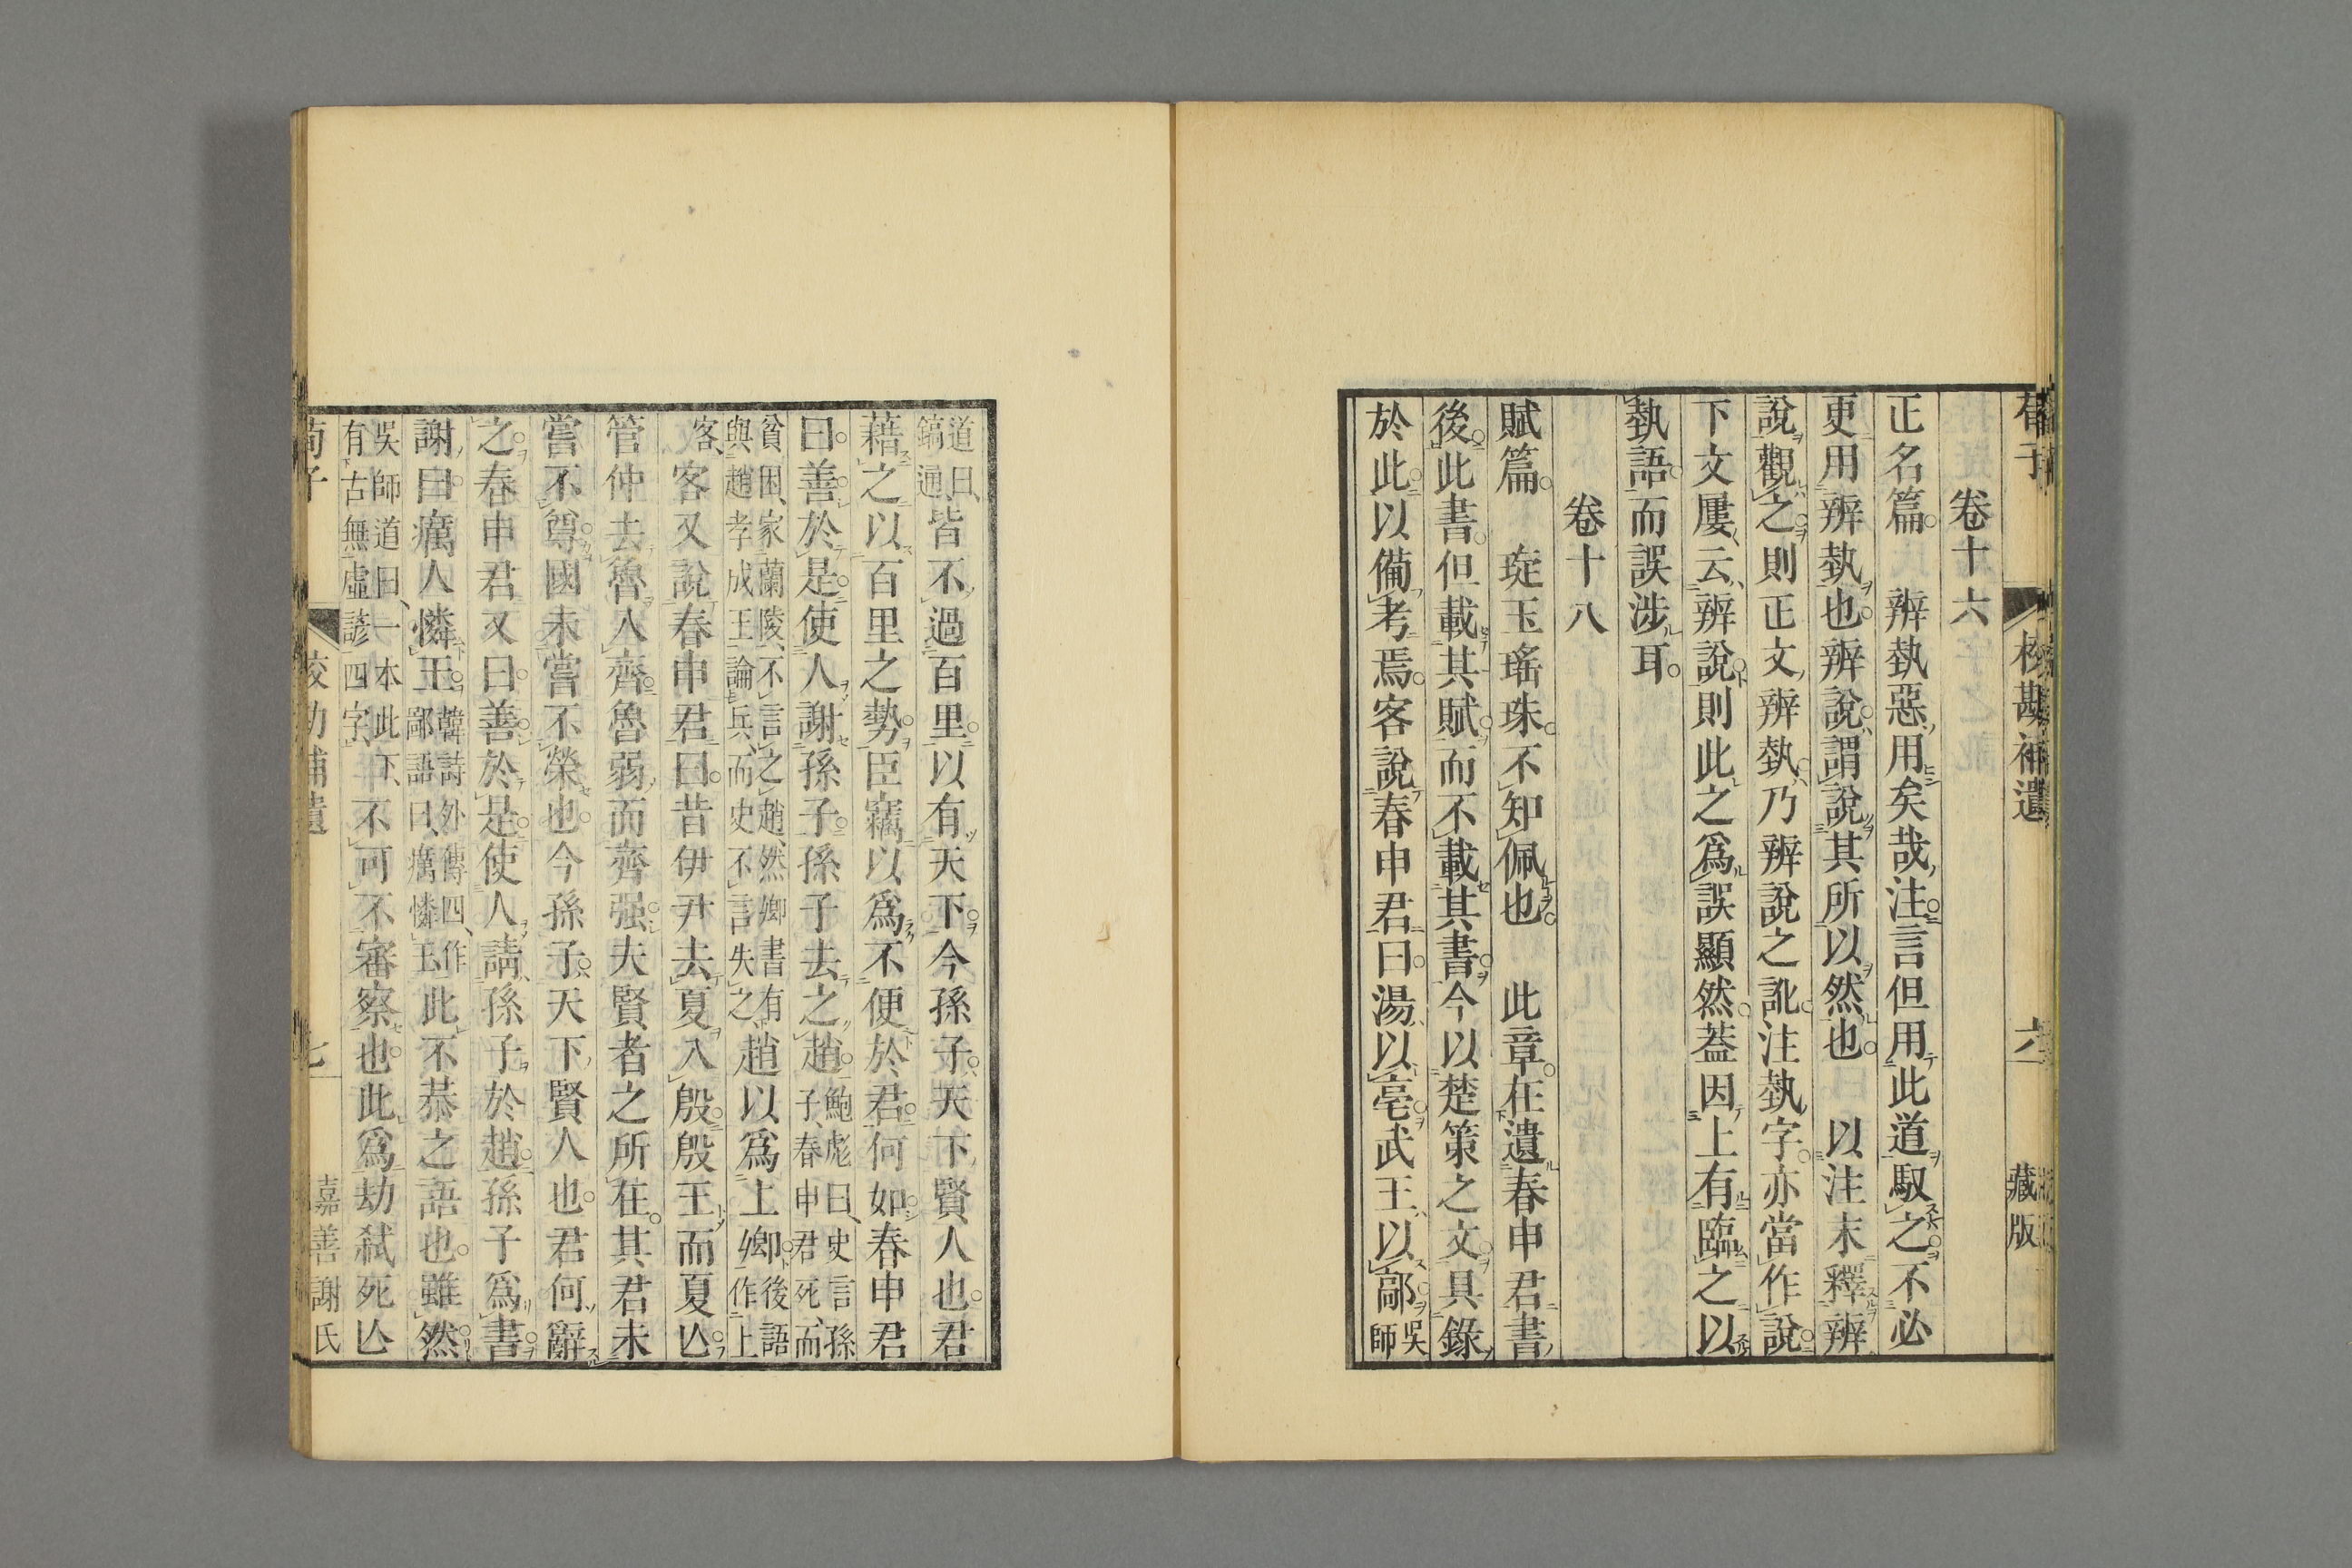 荀子 校勘補遺 六 藏版
卷十六
正名篇 辨執惡用矣哉注言但用此道馭之不必
更用辨執也辨說謂說其所以然也 以注末釋辨
說觀之則正文辨執乃辨說之訛注執字亦當作說
下文屢云辨說則此之爲誤顯然蓋因上有臨之以
執語而誤涉耳
卷十八
賦篇 琁玉瑤珠不知佩也 此章在遺春申君書
後此書但載其賦而不載其書今以楚策之文具錄
於此以備考焉客說春申君曰湯以亳武王以鄗吳師
道曰鎬通皆不過百里以有天下今孫子天下賢人也君
藉之以百里之勢臣竊以爲不便於君何如春申君
曰善於是使人謝孫子孫子去之趙鮑彪曰史言孫子春申君死而
貧困家蘭陵不言之趙然卿書有與趙孝成王論兵而史不言失之趙以爲上卿後語作上
客客又說春申君曰昔伊尹去夏入殷殷王而夏亾
管仲去魯入齊魯弱而齊强夫賢者之所在其君未
嘗不尊國未嘗不榮也今孫子天下賢人也君何辭
之春申君又曰善於是使人請孫子於趙孫子爲書
謝曰癘人憐王韓詩外傳四作鄙語曰癘憐王此不恭之語也雖然
吳師道曰一本此下有古無虛諺四字不可不審察也此爲劫弒死亾
荀子 校勘補遺 七 嘉善謝氏